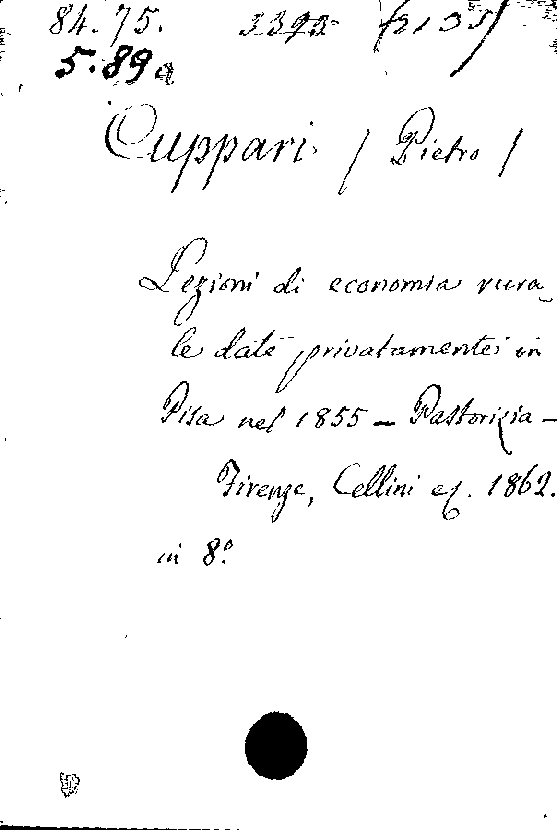 84.75. 3393 (2135)
5.89a
Cuppari / Pietro /
Lezioni di economia rura_
le date privatamente in
Pisa nel 1855 — Pastorizia —
Firenze, Cellini e C. 1862.
in 8º.